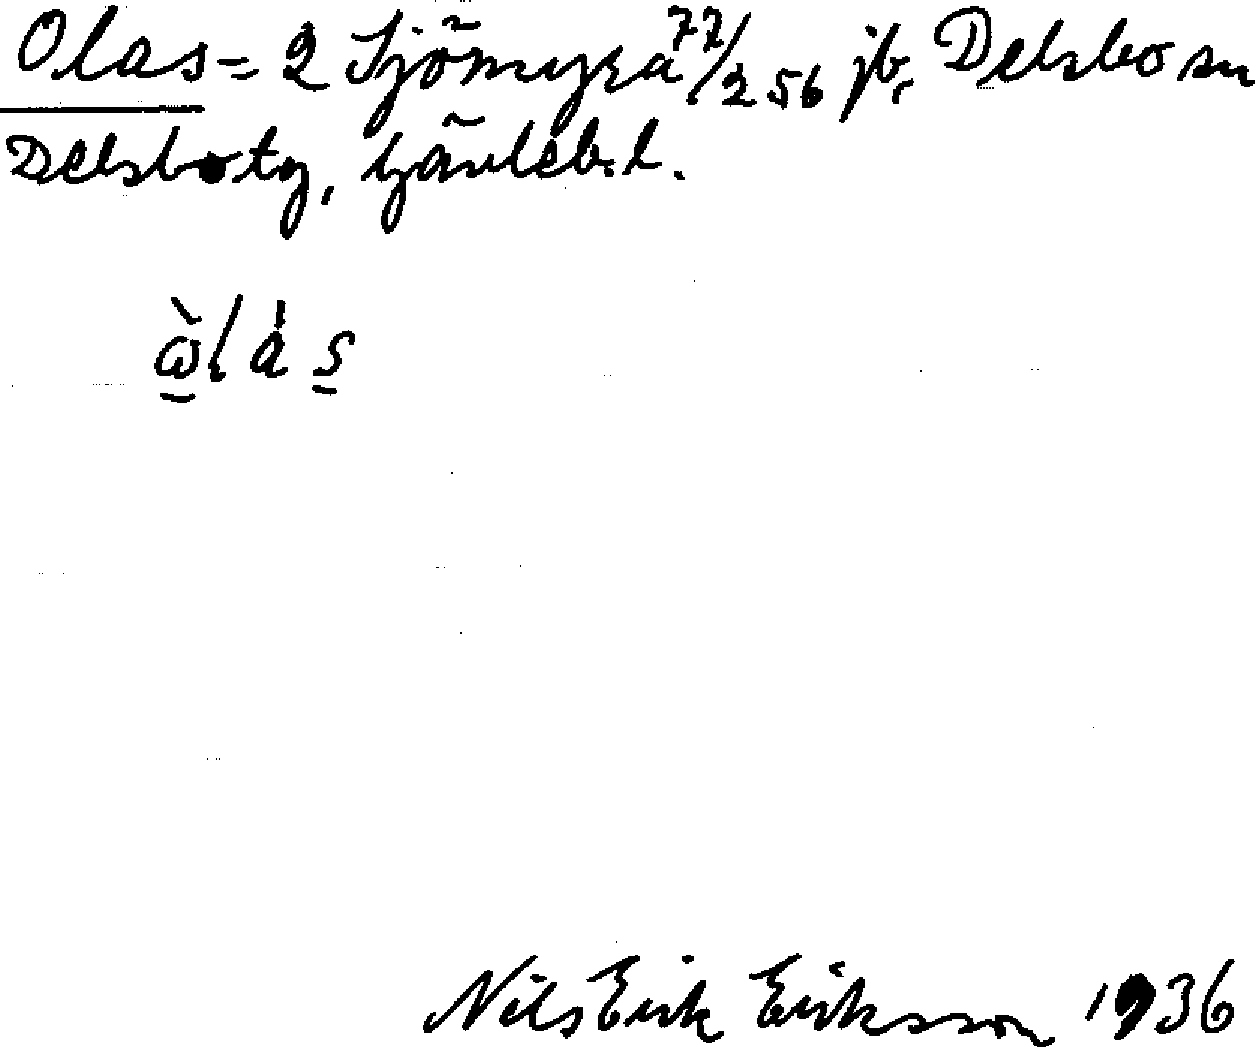 Olas = 2 Sjömyra 77/256 jb, Delsbo sn
Delsbo tg, Gävleb. l.
Nils Erik Eriksson 1936